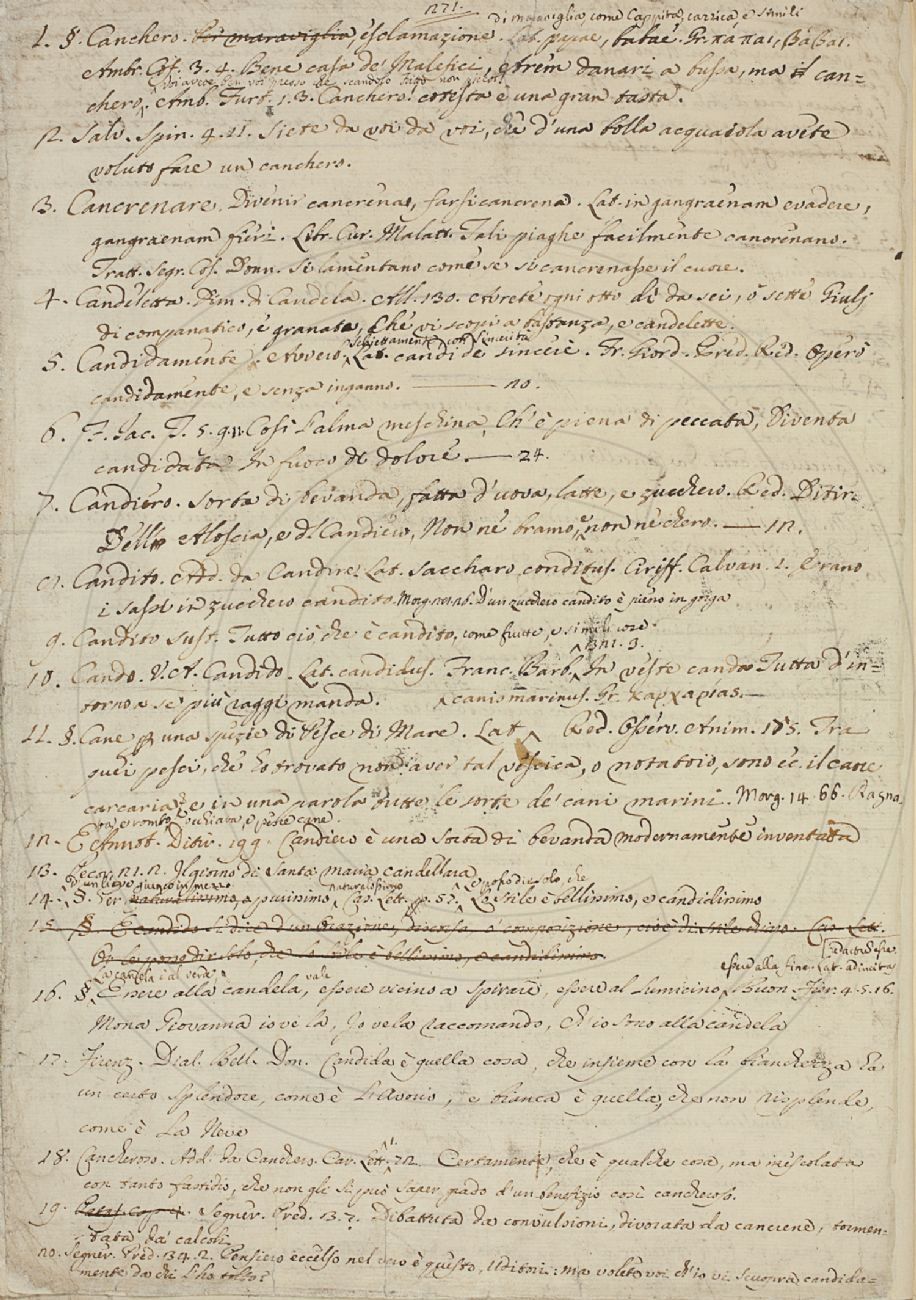 1271.
di maraviglia, come Cappita, cazzica, e simili
1. §. Canchero. Di maraviglia, esclamazione. Lat. papae, babaé. Gr. παπαι, Βαβαι.
Ambr. Cof. 3. 4. Bene casa de' Malefici, e trém danari a bussa, ma il can=
chero. Amb. Furt. 1. 3. Canchero. cotesta è una gran tasta.
12. Salv. Spin. 4. 11. Siete da voi da voi, che d'una bolla acquaiola avete
voluto fare un canchero.
3. Cancrenare. Divenir cancrena, farsi cancrena. Lat. in gangraenam evadere,
gangraenam fieri. Libr. Cur. Malatt. Tali piaghe facilmente cancrenano.
Tratt. Segr. Cos. Donn. Si lamentano come se si cancrenasse il cuore.
4. Candeletta. Dim. di Candela. All. 130. Avrete ogni otto dì da sei, o sette Giulj
di companatico, e granata, Che vi scopi a bastanza, e candelette.
schiettamente con sincerità
5. Candidamente. Avverb. Lat. candidè sincerè. Fr. Giord. Pred. Red. Operò
candidamente, e senza inganno. 20.
6. F. Jac. T. 5. 9. Così l'alma meschina, Ch'è piena di peccata, Diventa
candidata In fuoco di dolore. 24.
7. Candiero. Sorta di bevanda, fatta d'uova, latte, e zucchero. Red. Ditir.
Dell' Aloscia, e di Candiero, Non nè bramo, e non nè chero. 12.
8. Candito. Add. da Candire. Lat. saccharo conditus. Ciriff. Calvan. 1. Erano
i sassi in zucchero candito. Morg. D'un zucchero candito è pieno in gorga
9. Candito Sust. Tutto ciò che è candito, come frutte, e simili cose.
10. Cando. V. A. Candido. Lat. candidus. Franc. Barb. In veste canda Tutta d'in=
torno a se più raggi manda. canis marinus. Gr. καρχαριας.
11. §. Cane p una spezie di Pesce di Mare. Lat. Red. Osserv. Anim. 175. Fra
quei pesci, che ho trovato non aver tal vescica, o notatoio, sono ec. il cane
carcaria, e in una parola tutte le sorte de' cani marini. Morg. 14. 66. Ragna
ta e rombo, occhiata, e pesce cane.
12. E Annot. Ditir. 199. Candiero è una sorta di bevanda modernamente inventata
13. Pecor. 21. 2. Il giorno di Santa maria candellara
14. §. Per naturalissimo, e purissimo. Car. Lett. p. 57. Lo stile è bellissimo, e candidissimo
15. §. E candido si dice d'un orazione, discorso, o composizione, cioè di stile chiaro. Car. Lett.
La candela è al verde vale esser alla fine. Lat. ad incitas
16. §. Essere alla candela, essere vicino a spirare, essere al lumicino. Buon. Fier. 4. 5. 16.
Mona Giovanna io ve la, Io ve la raccomando, ch'io sono alla candela
17. Firenz. Dial. Bell. Don. Candida è quella cosa, che insieme con la bianchezza ha
un certo splendore, come è l'Avorio, e bianca è quella, che non risplende,
come è la Neve
18. Cancheroso. Add. da Canchero. Car. Lett. 72. Certamente, che è qualche cosa, ma mescolata
con tanto fastidio, che non gli si può saper grado d'un benefizio così cancheroso.
19. Segner. Pred. 13. 7. Dibattuta da convulsioni, divorata da cancrene, tormen=
tata da' calcoli
20. Segner. Pred. 34. 2. Pensiero eccelso nel vero è questo, Uditori: ma volete voi ch'io vi scuopra candida=
mente da chi l'ho tolto?